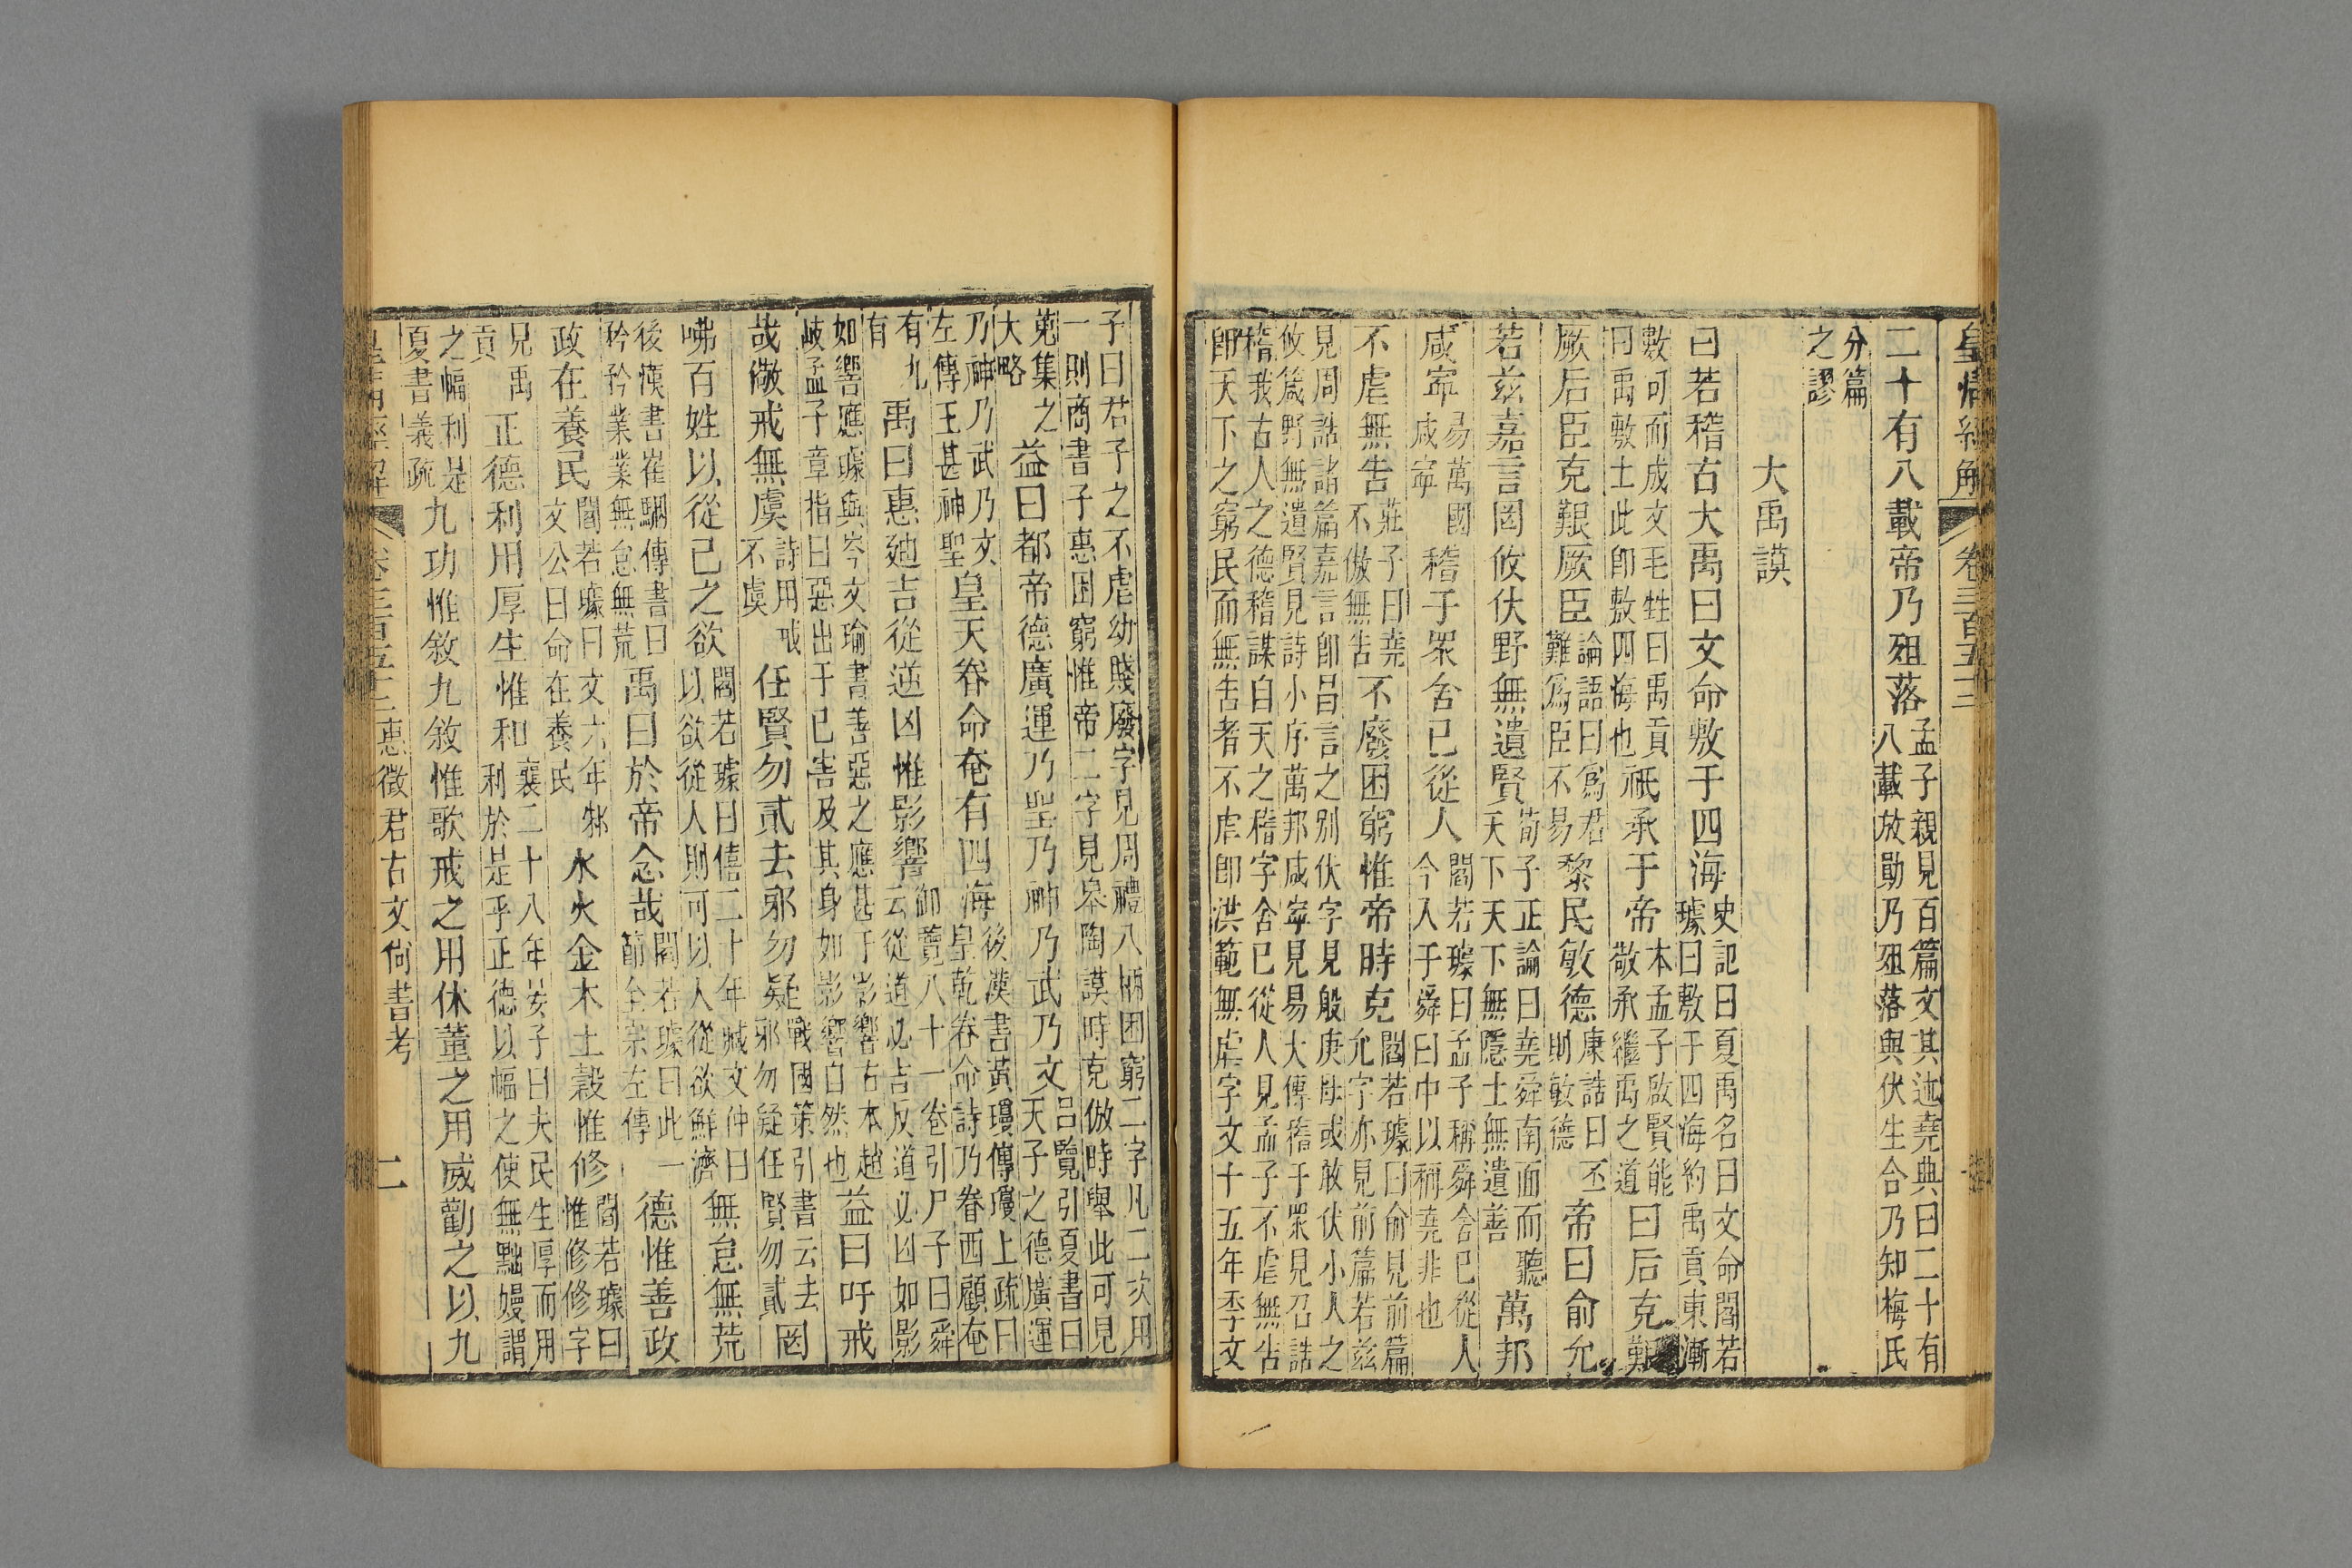 皇清經解 卷三百五十二
二十有八載帝乃殂落孟子親見百篇文其述堯典曰二十有八載放勛乃殂落與伏生合乃知梅氏
分篇之謬
大禹謨
曰若稽古大禹曰文命敷于四海史記曰夏禹名曰文命閻若璩曰敷于四海約禹貢東漸
敷何而成文毛甡曰禹貢曰禹敷土此卽敷四海也祗承于帝本孟子啟賢能敬承繼禹之道曰后克艱
厥后臣克艱厥臣論語曰爲君難爲臣不易黎民敏德康誥曰丕則敏德帝曰俞允
若茲嘉言罔攸伏野無遺賢荀子正論曰堯舜南面而聽天下天下無隱士無遺善萬邦
咸寍易萬國咸寧稽于眾舍己從人閻若璩曰孟子稱舜舍己從人今入于舜曰中以稱堯非也
不虐無告莊子曰堯不傲無告不廢困窮惟帝時克閻若璩曰俞見前篇允字亦見前篇若茲
見周誥諸篇嘉言卽昌言之別伏字見般庚毋或敢伏小人之攸箴野無遺賢見詩小序萬邦咸寧見易大傳稽于眾見召誥
稽我古人之德稽謀自天之稽字舍己從人見孟子不虐無告卽天下之窮民而無告者不虐卽洪範無虐字文十五年季文
子曰君子之不虐幼賤廢字見周禮八柄困窮二字凡二次用一則商書子惠困窮惟帝二字見皋陶謨時克倣時舉此可見
蒐集之大略益曰都帝德廣運乃聖乃神乃武乃文呂覽引夏書曰天子之德廣運
乃神乃武乃文左傳王甚神聖皇天眷命奄有四海後漢書黃瓊傳瓊上疏曰皇乾眷命詩乃眷西顧奄
有九有禹曰惠迪吉從逆凶惟影響御覽八十一卷引尸子曰舜云從道必吉反道必凶如影
如響應璩與岑文瑜書善惡之應甚于影響古本趙岐孟子章指曰惡出于己害及其身如影響自然也益曰吁戒
哉儆戒無虞詩用戒不虞任賢勿貳去邪勿疑戰國策引書云去邪勿疑任賢勿貳罔
咈百姓以從己之欲閻若璩曰僖二十年臧文仲曰以欲從人則可以人從欲鮮濟無怠無荒
後漢書崔駰傳書曰矜矜業業無怠無荒禹曰於帝念哉閻若璩曰此一節全宗左傳德惟善政
政在養民閻若璩曰文六年邾文公曰命在養民水火金木土穀惟修閻若璩曰惟修修字
見禹貢正德利用厚生惟和襄二十八年晏子曰夫民生厚而用利於是乎正德以幅之使無黜嫚謂
之幅利是夏書義疏九功惟敘九敘惟歌戒之用休董之用威勸之以九
皇清經解 卷三百五十二 惠徵君古文尙書考 二